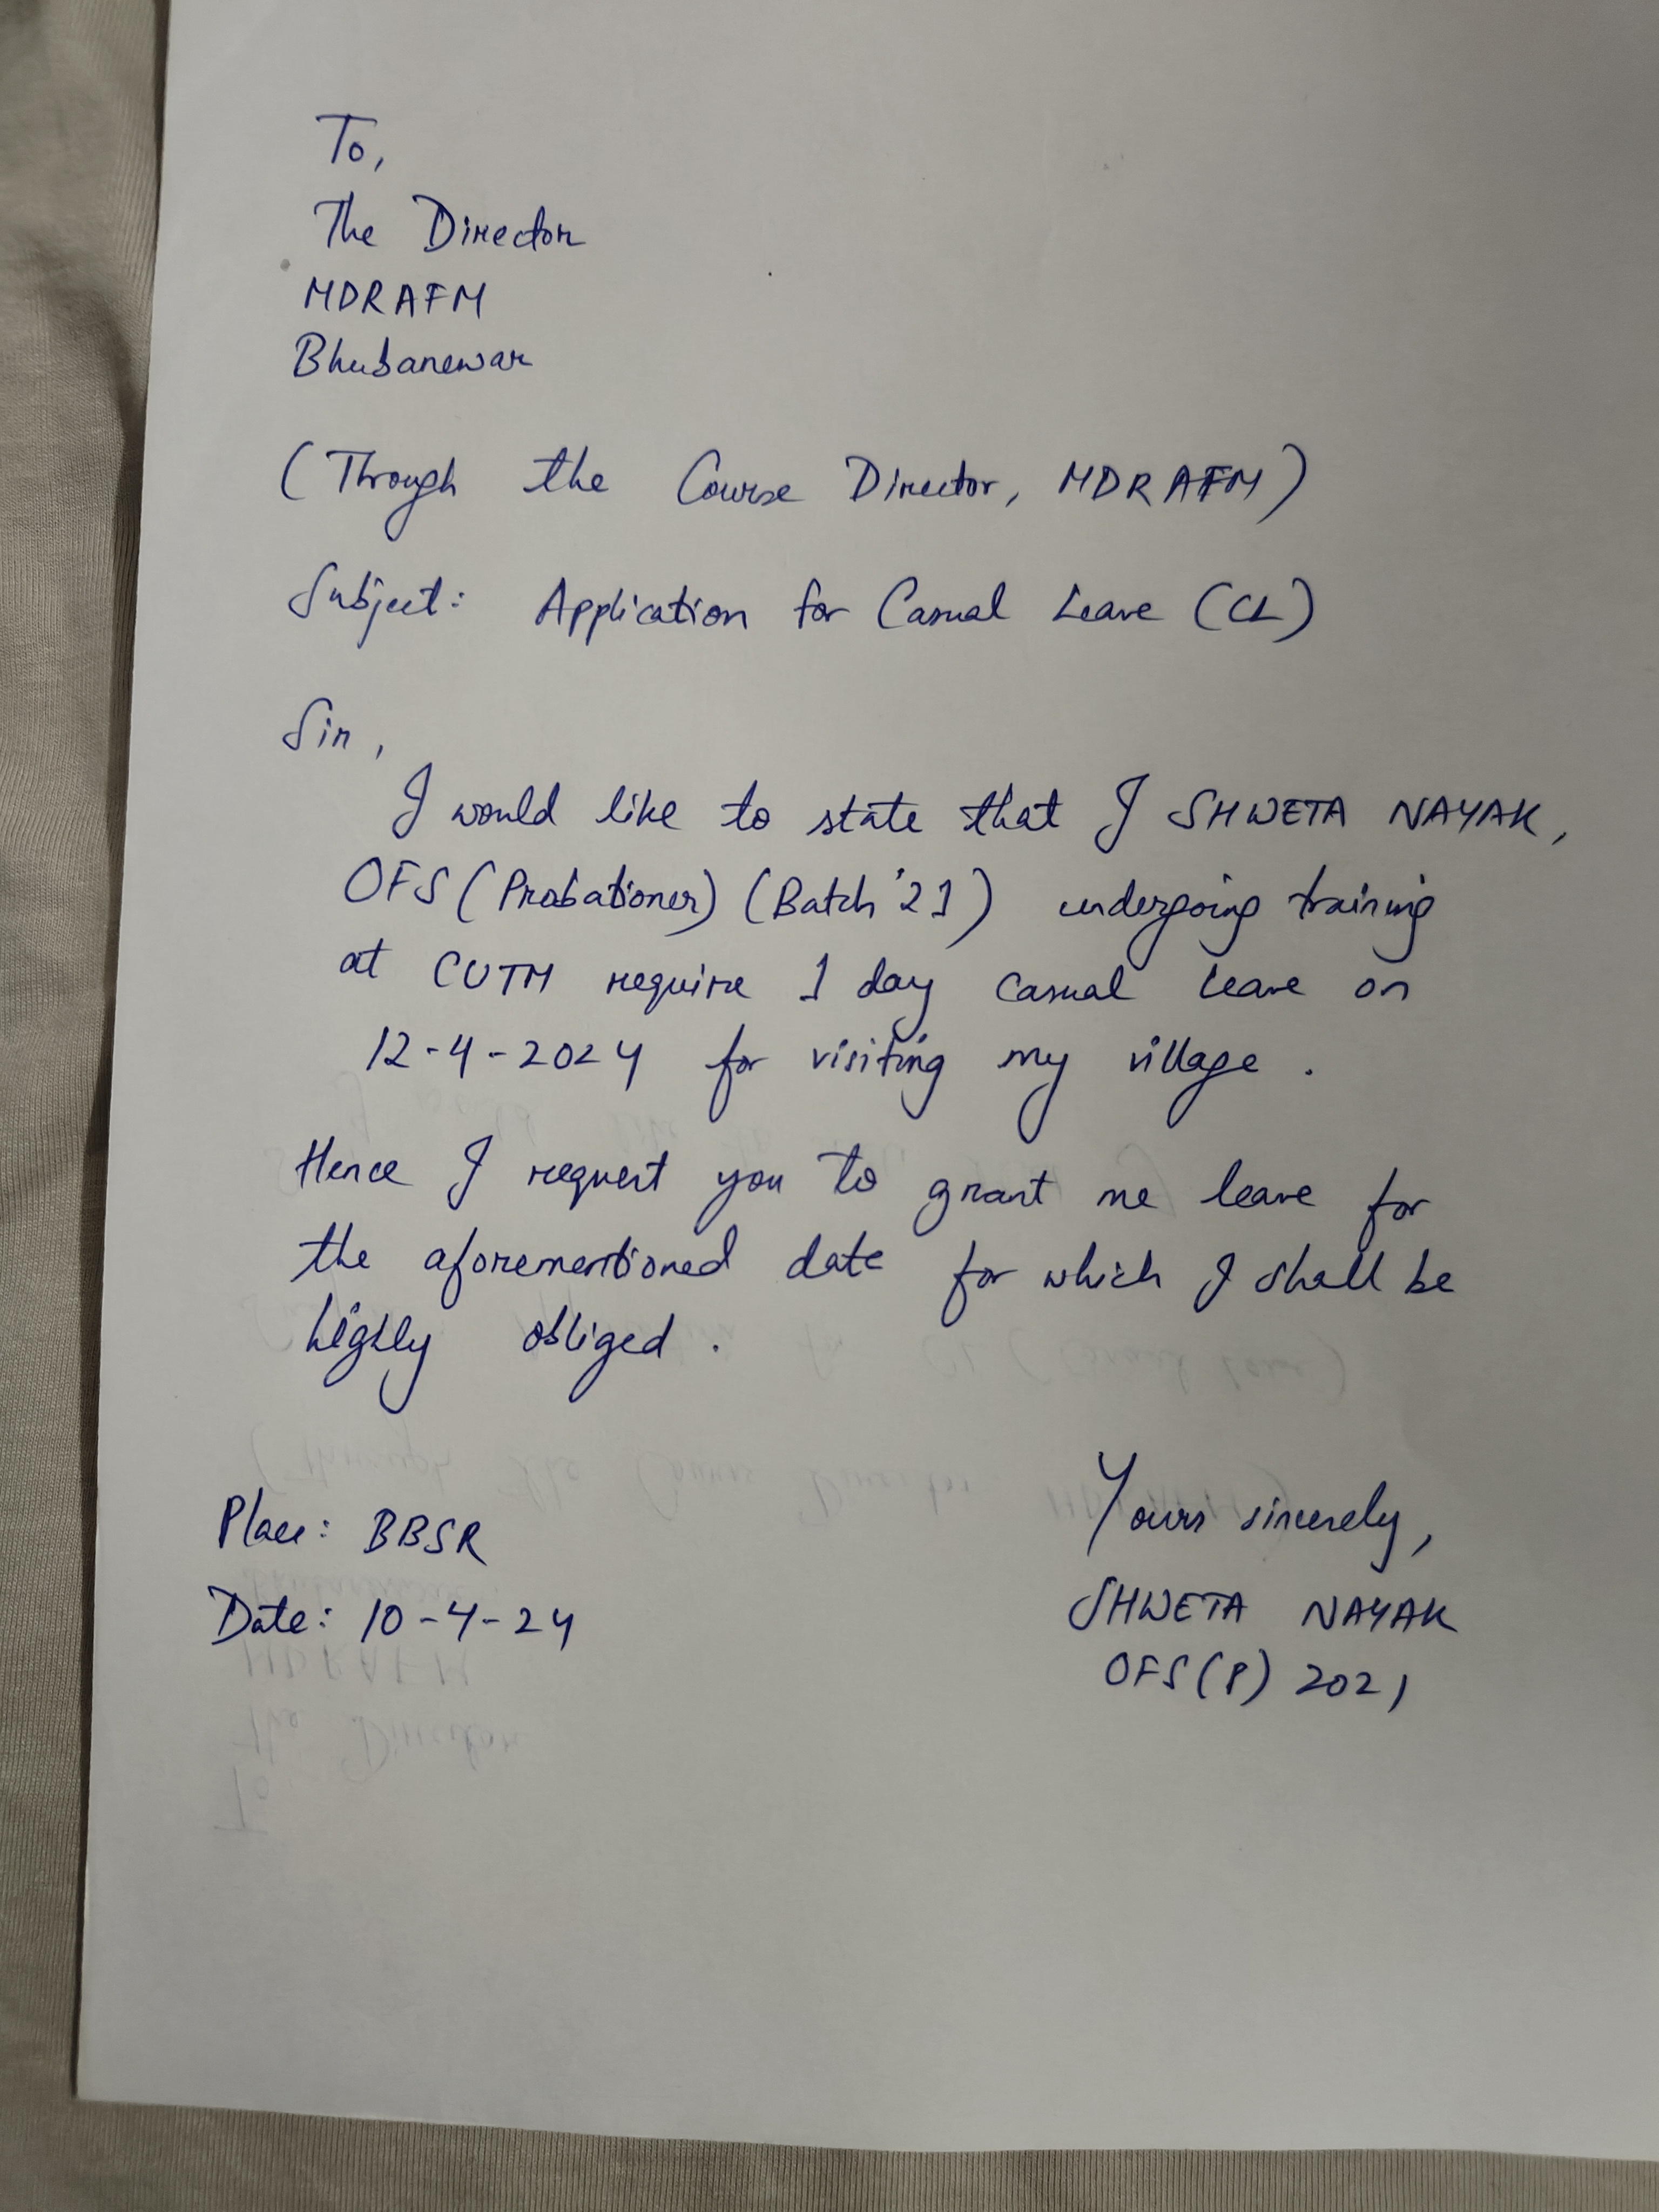 To,
The Director
MDRAFM
Bhubanewar
(Through the Course Director, MDRAFM)
Subject: Application for Casual Leave (CL)
Sir,
I would like to state that I SHWETA NAYAK,
OFS (Probationer) (Batch '21) undergoing training
at CUTM require 1 day casual leave on
12-4-2024 for visiting my village.
Hence I request you to grant me leave for
the aforementioned date for which I shall be
highly obliged.
Yours sincerely,
Place: BBSR
SHWETA NAYAK
Date: 10-4-24
OFS (P) 2021